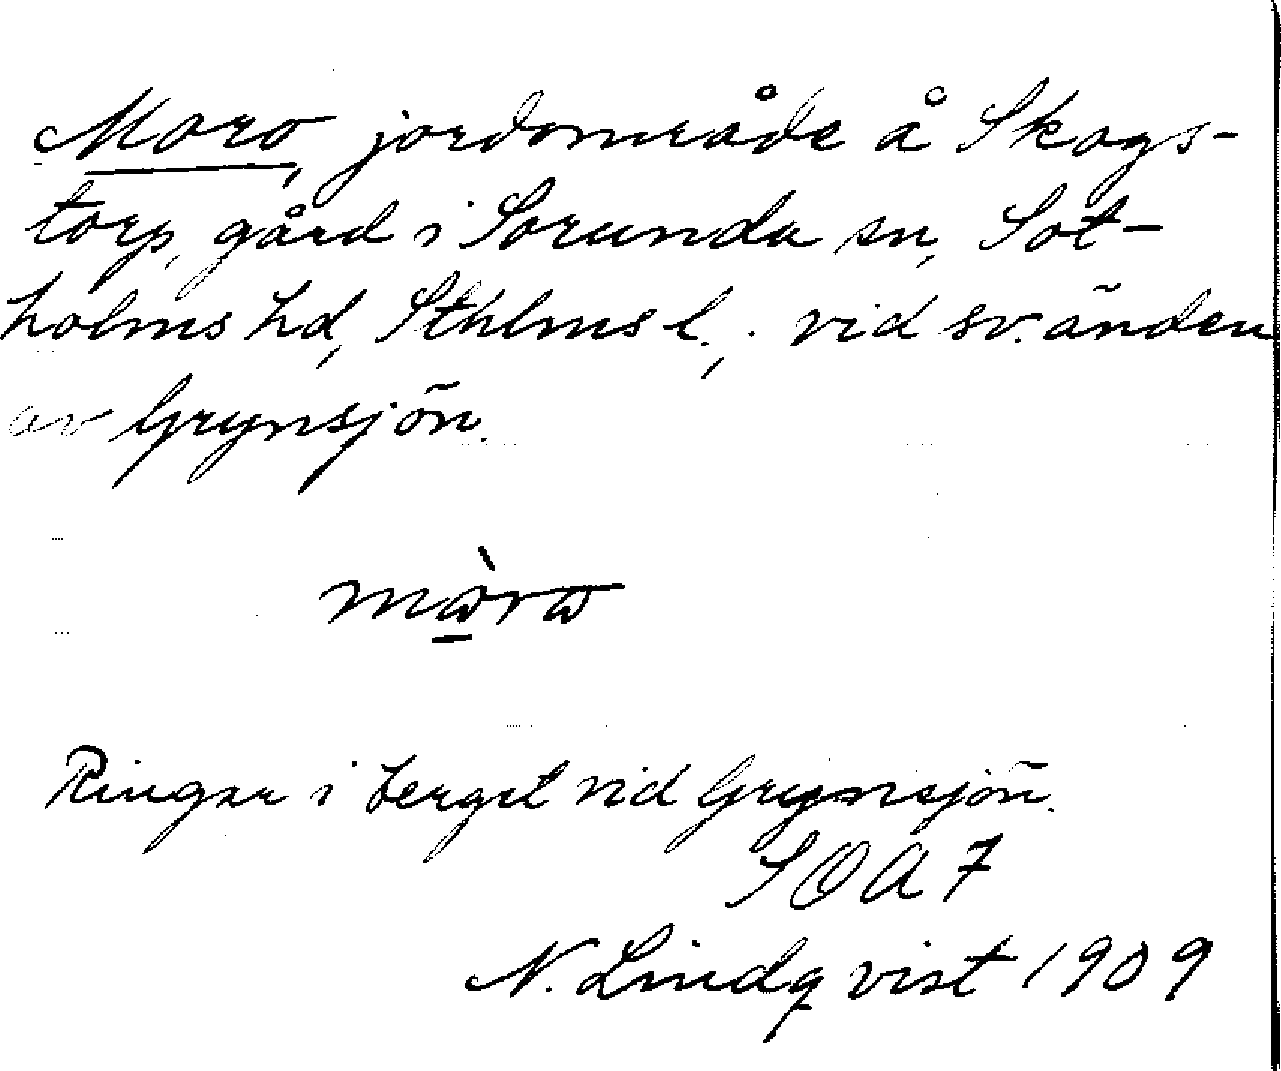 Moro, jordområde å Skogs-
torp, gård i Sorunda sn, Sot-
holms hd, Sthlms l.; vid sv. änden
av Grynsjön.
mɷ̀rɷ
Ringar i berget vid Grynsjön.
SOA 7
N. Lindqvist 1909